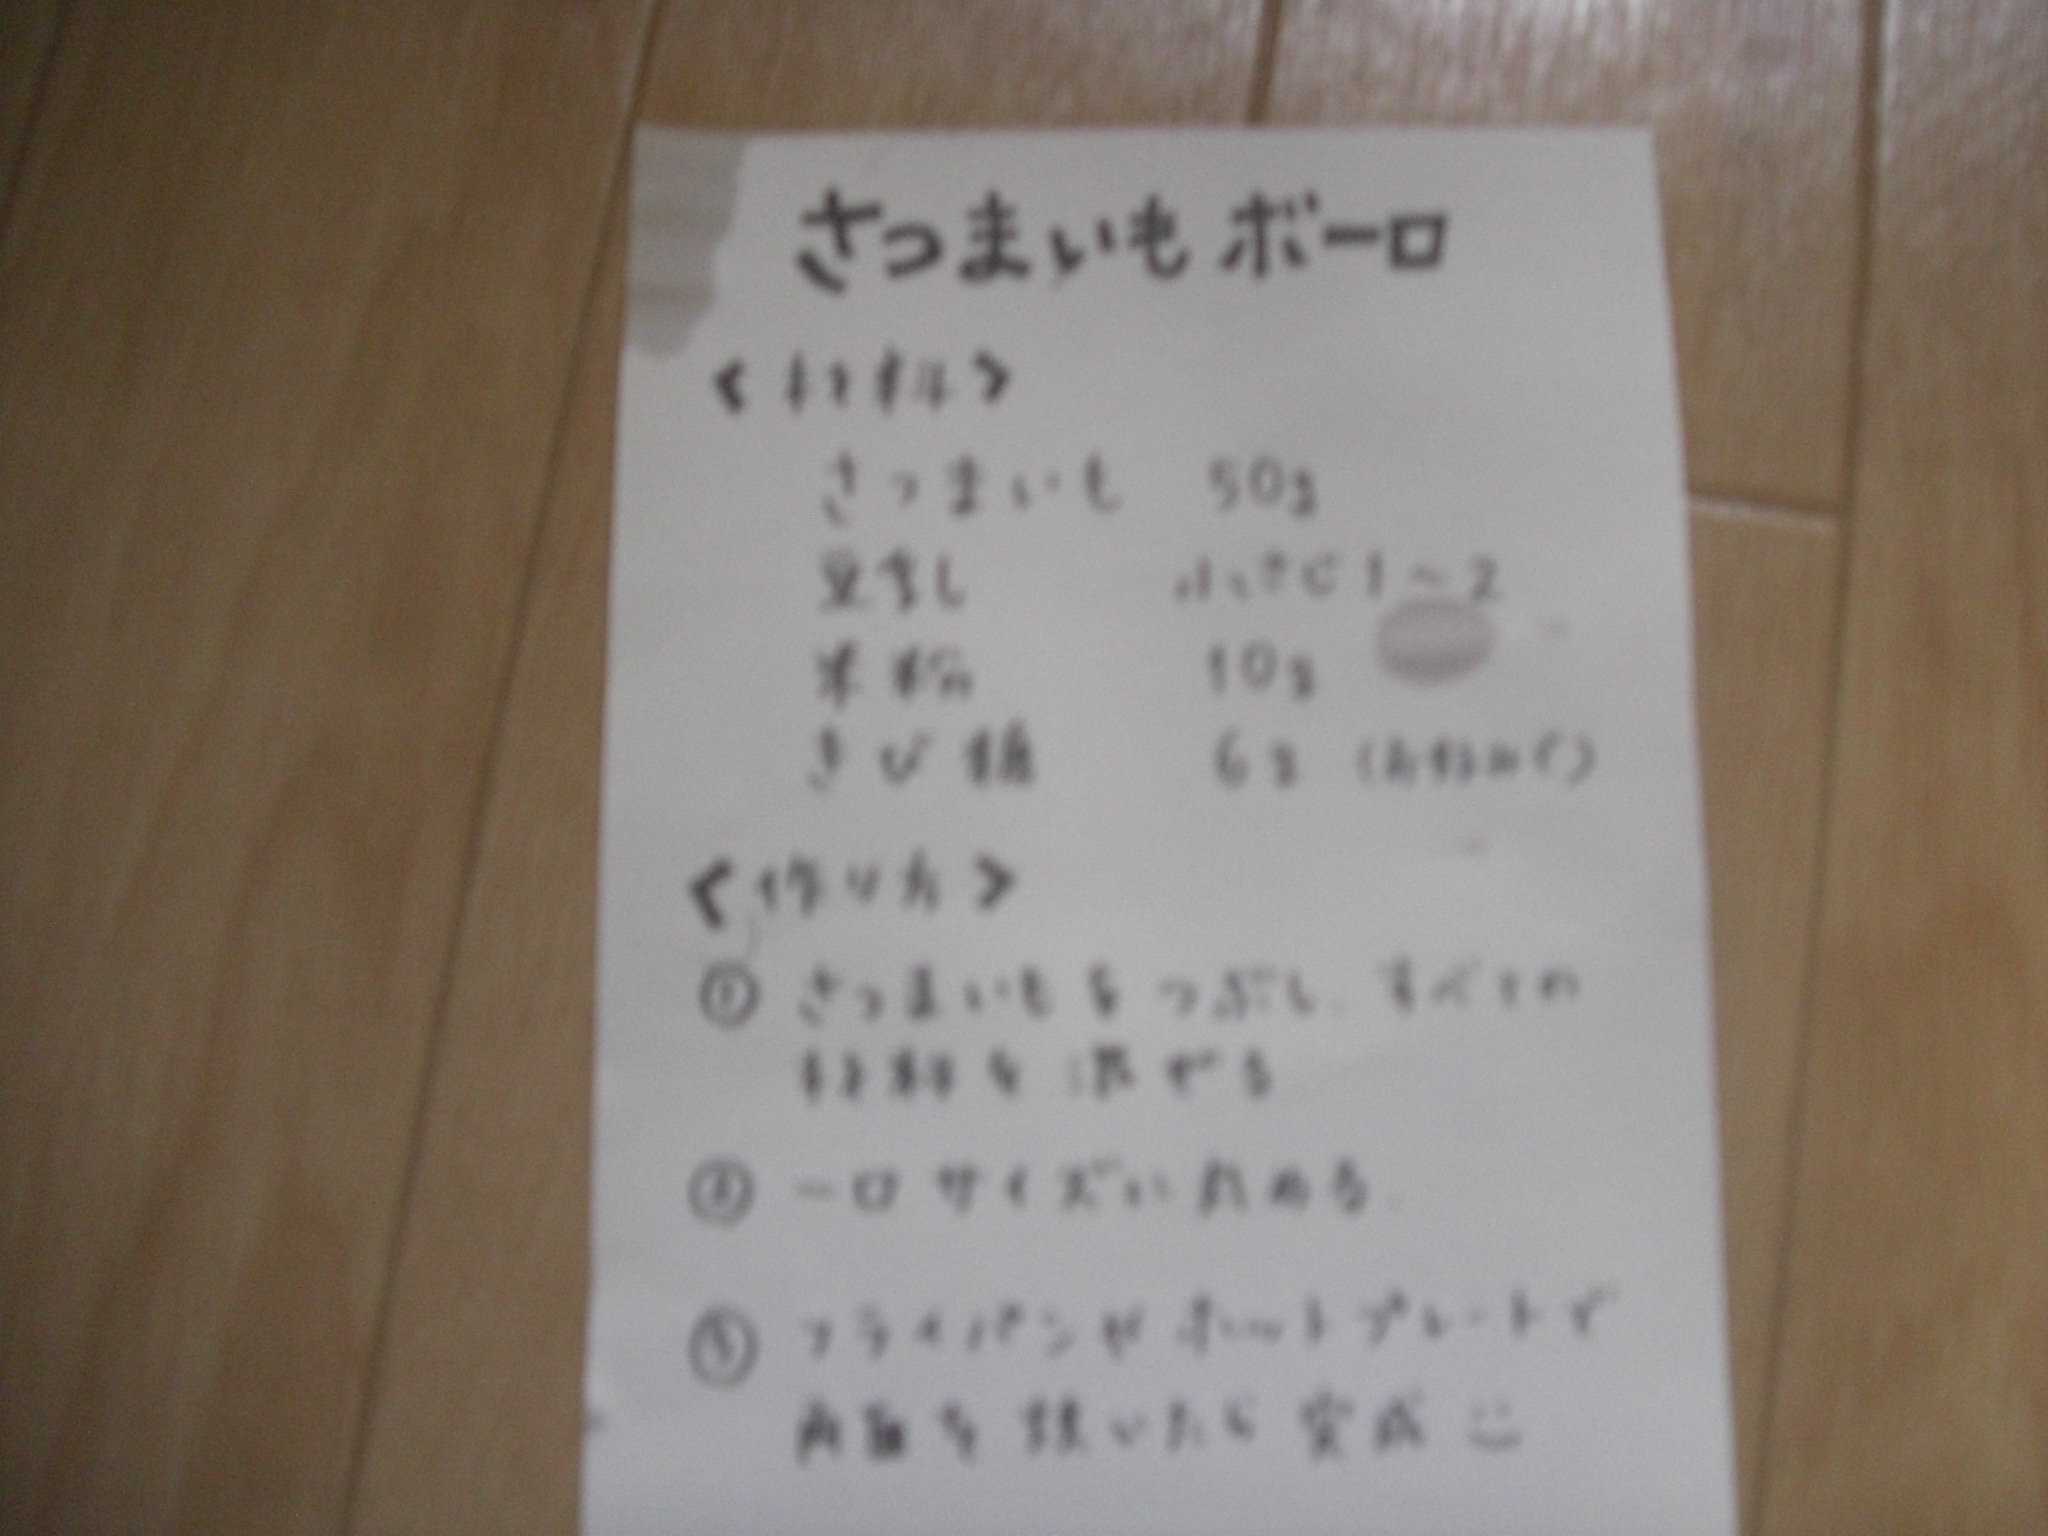 さつまいもボーロ
<材料>
さつまいも 50g
豆乳 小さじ1~2
米粉 10g
きび糖 6g (お好みで)
<作り方>
① さつまいもをつぶし、すべての
材料を混ぜる
② 一口サイズに丸める
③ フライパンやホットプレートで
両面を焼いたら完成